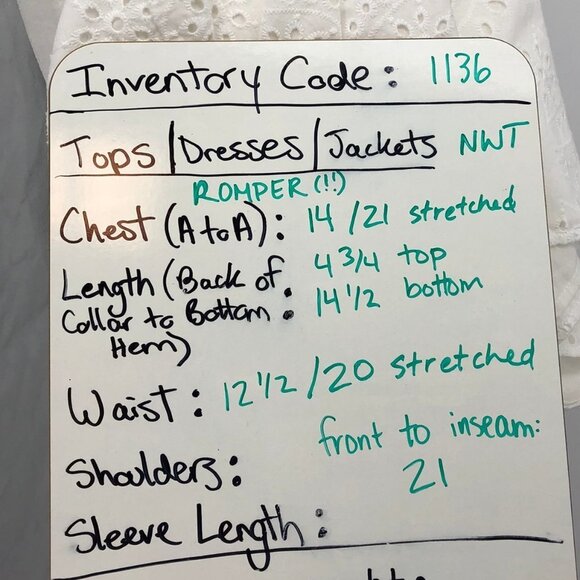 Inventory Code: 1136
Tops/Dresses/Jackets NWT
ROMPER (!!)
Chest (A to A): 14/21 stretched
Length (Back of 4 3/4 top
Collar to Bottom: 14 1/2 bottom
Hem)
Waist: 12 1/2/20 stretched
front to inseam:
Shoulders: 21
Sleeve Length: